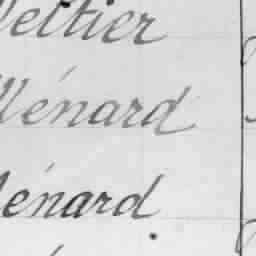 Peltier
Ménard
Ménard